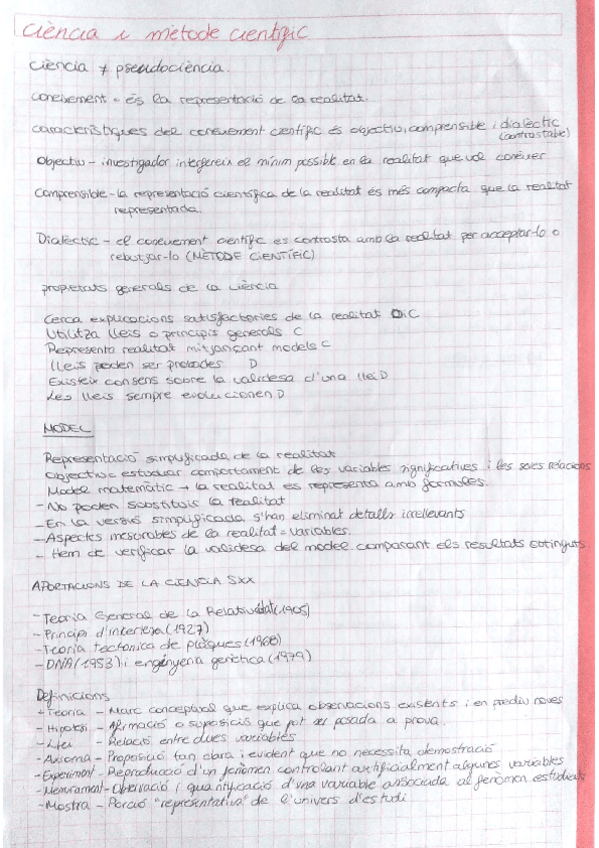 Ciència i mètode científic
Ciència ≠ pseudociència.
Coneixement = és la representació de la realitat.
Característiques del coneixement científic és objectiu, comprensible i dialèctic
(contrastable)
Objectiu - investigador interfereix el mínim possible en la realitat que vol conèixer
Comprensible - la representació científica de la realitat és més compacta que la realitat
representada.
Dialèctic - el coneixement científic es contrasta amb la realitat per acceptar-lo o
rebutjar-lo (MÈTODE CIENTÍFIC)
propietats generals de la ciència
Cerca explicacions satisfactories de la realitat O.C
Utilitza lleis o principis generals C
Representa realitat mitjançant models C
lleis poden ser probades D
Existeix consens sobre la validesa d'una llei D
Les lleis sempre evolucionen D
MODEL
Representació simplificada de la realitat
Objectiu: estudiar comportament de les variables significatives i les seves relacions
Model matemàtic → la realitat es representa amb formules.
- No poden substituir la realitat
- En la versió simplificada s'han eliminat detalls irrellevants
- Aspectes mesurables de la realitat = variables.
- Hem de verificar la validesa del model comparant els resultats obtinguts.
APORTACIONS DE LA CIÈNCIA SXX
- Teoria General de la Relativitat (1905)
- Principi d'incertesa (1927)
- Teoria tectònica de plaques (1968)
- DNA (1953) i enginyeria genètica (1979)
Definicions
- Teoria - Marc conceptual que explica observacions existents i en prediu noves
- Hipòtesi - Afirmació o suposició que pot ser posada a prova.
- Llei - Relació entre dues variables
- Axioma - Proposició tan clara i evident que no necessita demostració
- Experiment - Reproducció d'un fenòmen controlant artificialment algunes variables
- Mesurament - Observació i quantificació d'una variable associada al fenòmen estudiat
- Mostra - Porció "representativa" de l'univers d'estudi